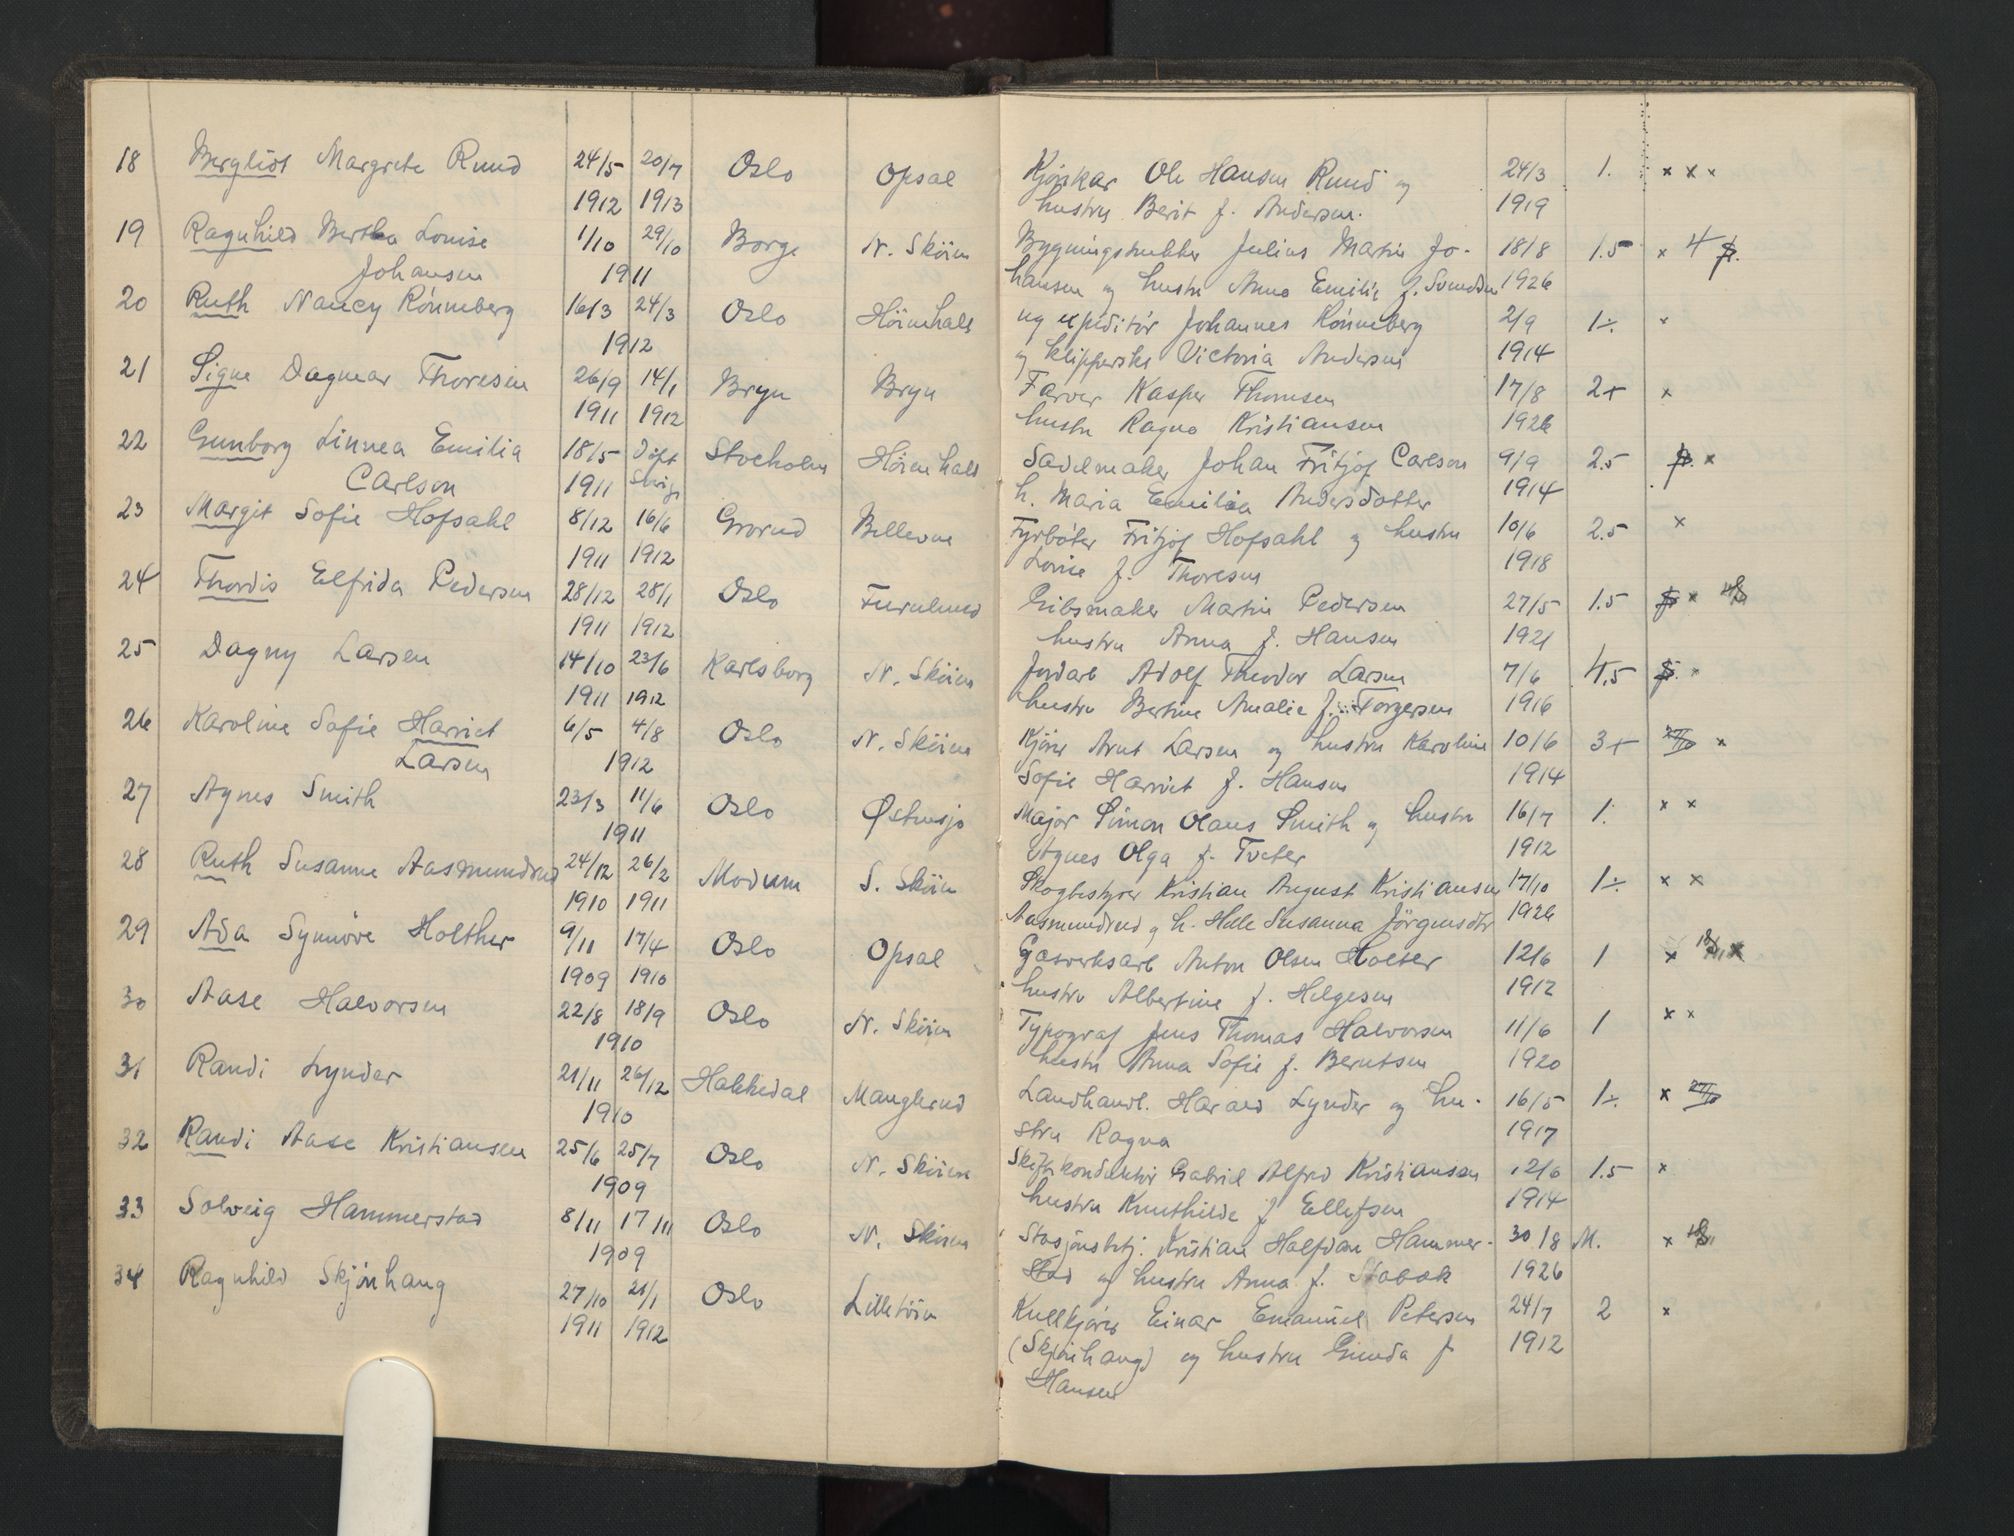 18 Bergliot Margrete Ruud 24/5 20/7 Oslo Opsal Kjørekar Ole Hansen Ruud og 24/3 1. × × ×
1912 1913 hustru Berit f. Andersen. 1919
19 Ragnhild Bertha Louise 1/10 29/10 Borge N. Skøien Bygningssnekker Julius Martin Jo- 18/8 1.5 × 4 f.
Johansen 1911 hansen og hustru Anna Emilie f. Svendsen 1926
20 Ruth Nancy Rönneberg 16/3 24/3 Oslo Höienhall ug expeditör Johannes Rönneberg 2/9 1÷. ×
1912 og klipperske Victoria Andersen 1914
21 Signe Dagmar Thoresen 26/9 14/1 Bryn Bryn Farver Kasper Thoresen 17/8 2+ ×
1911 1912 hustru Ragna Kristiansen 1926
22 Gunborg Linnea Emilia 18/5 Döpt Stockholm Höienhall Sadelmaker Johan Fritjof Carlson 9/9 2.5 f. ×
Carlson 1911 Sverige h. Maria Emilia Andersdotter 1914
23 Margit Sofie Hofsahl 8/12 16/6 Grorud Bellevue Fyrböter Fritjof Hofsahl og hustru 10/6 2.5 ×
1911 1912 Lovise f. Thoresen 1918
24 Thordis Elfrida Pedersen 28/12 28/1 Oslo Furulund Gibsmaker Martin Pedersen 27/5 1.5 f ×
1911 1912 hustru Anna f. Hansen 1921
25 Dagny Larsen 14/10 23/6 Karlsborg N. Skøien Jordarb Adolf Theodor Larsen 7/6 4.5 f. ×
1911 1912 hustru Bertine Amalie f. Torgersen 1916
26 Karoline Sofie Harriet 6/5 4/8 Oslo N. Skøien Kjører Arnt Larsen og hustru Karoline 10/6 3+ 27/10 ×
Larsen 1912 Sofie Harriet f. Hansen 1914
27 Agnes Smith 23/3 11/6 Oslo Østensjø Major Simon Olaus Smith og hustru 16/7 1. × ×
1911 Agnes Olga f. Tveter 1912
28 Ruth Susanne Aasmundrud 24/12 26/2 Modum S. Skøien Skogbestyrer Kristian August Kristiansen 17/10 1÷ × ×
1910 1911 Aasmundrud og h. Helle Susanna Jörgensdtr 1926
29 Ada Synnöve Holther 9/11 17/4 Oslo Opsal Gasverksarb Anton Olsen Holter 12/6 1 × ×
1909 1910 hustru Albertine f. Helgesen 1912
30 Aase Halvorsen 22/8 18/9 Oslo N. Skøien Typograf Jens Thomas Halvorsen 11/6 1 × ×
1910 hustru Anna Sofie f. Berntsen 1920
31 Randi Lynder 21/11 26/12 Hakkedal Manglerud Landhandl. Harald Lynder og hu- 16/5 1÷. × 27/10
1910 stru Ragna 1917
32 Randi Aase Kristiansen 25/6 25/7 Oslo N. Skøien Skiftekonduktör Gabriel Alfred Kristiansen 12/6 1.5 ×
1909 hustru Knuthilde f Ellefsen 1914
33 Solveig Hammerstad 8/11 17/11 Oslo N. Skøien Stasjonsbetj. Kristian Halfdan Hammer- 30/8 M. ×
1909 stad og hustru Anna f. Stabak 1926
34 Ragnhild Skjönhaug 27/10 21/1 Oslo Lilletøien Kullkjører Einar Emanuel Petersen 24/7 2 ×
1911 1912 (Skjönhaug) og hustru Gunda f 1912
Hansen